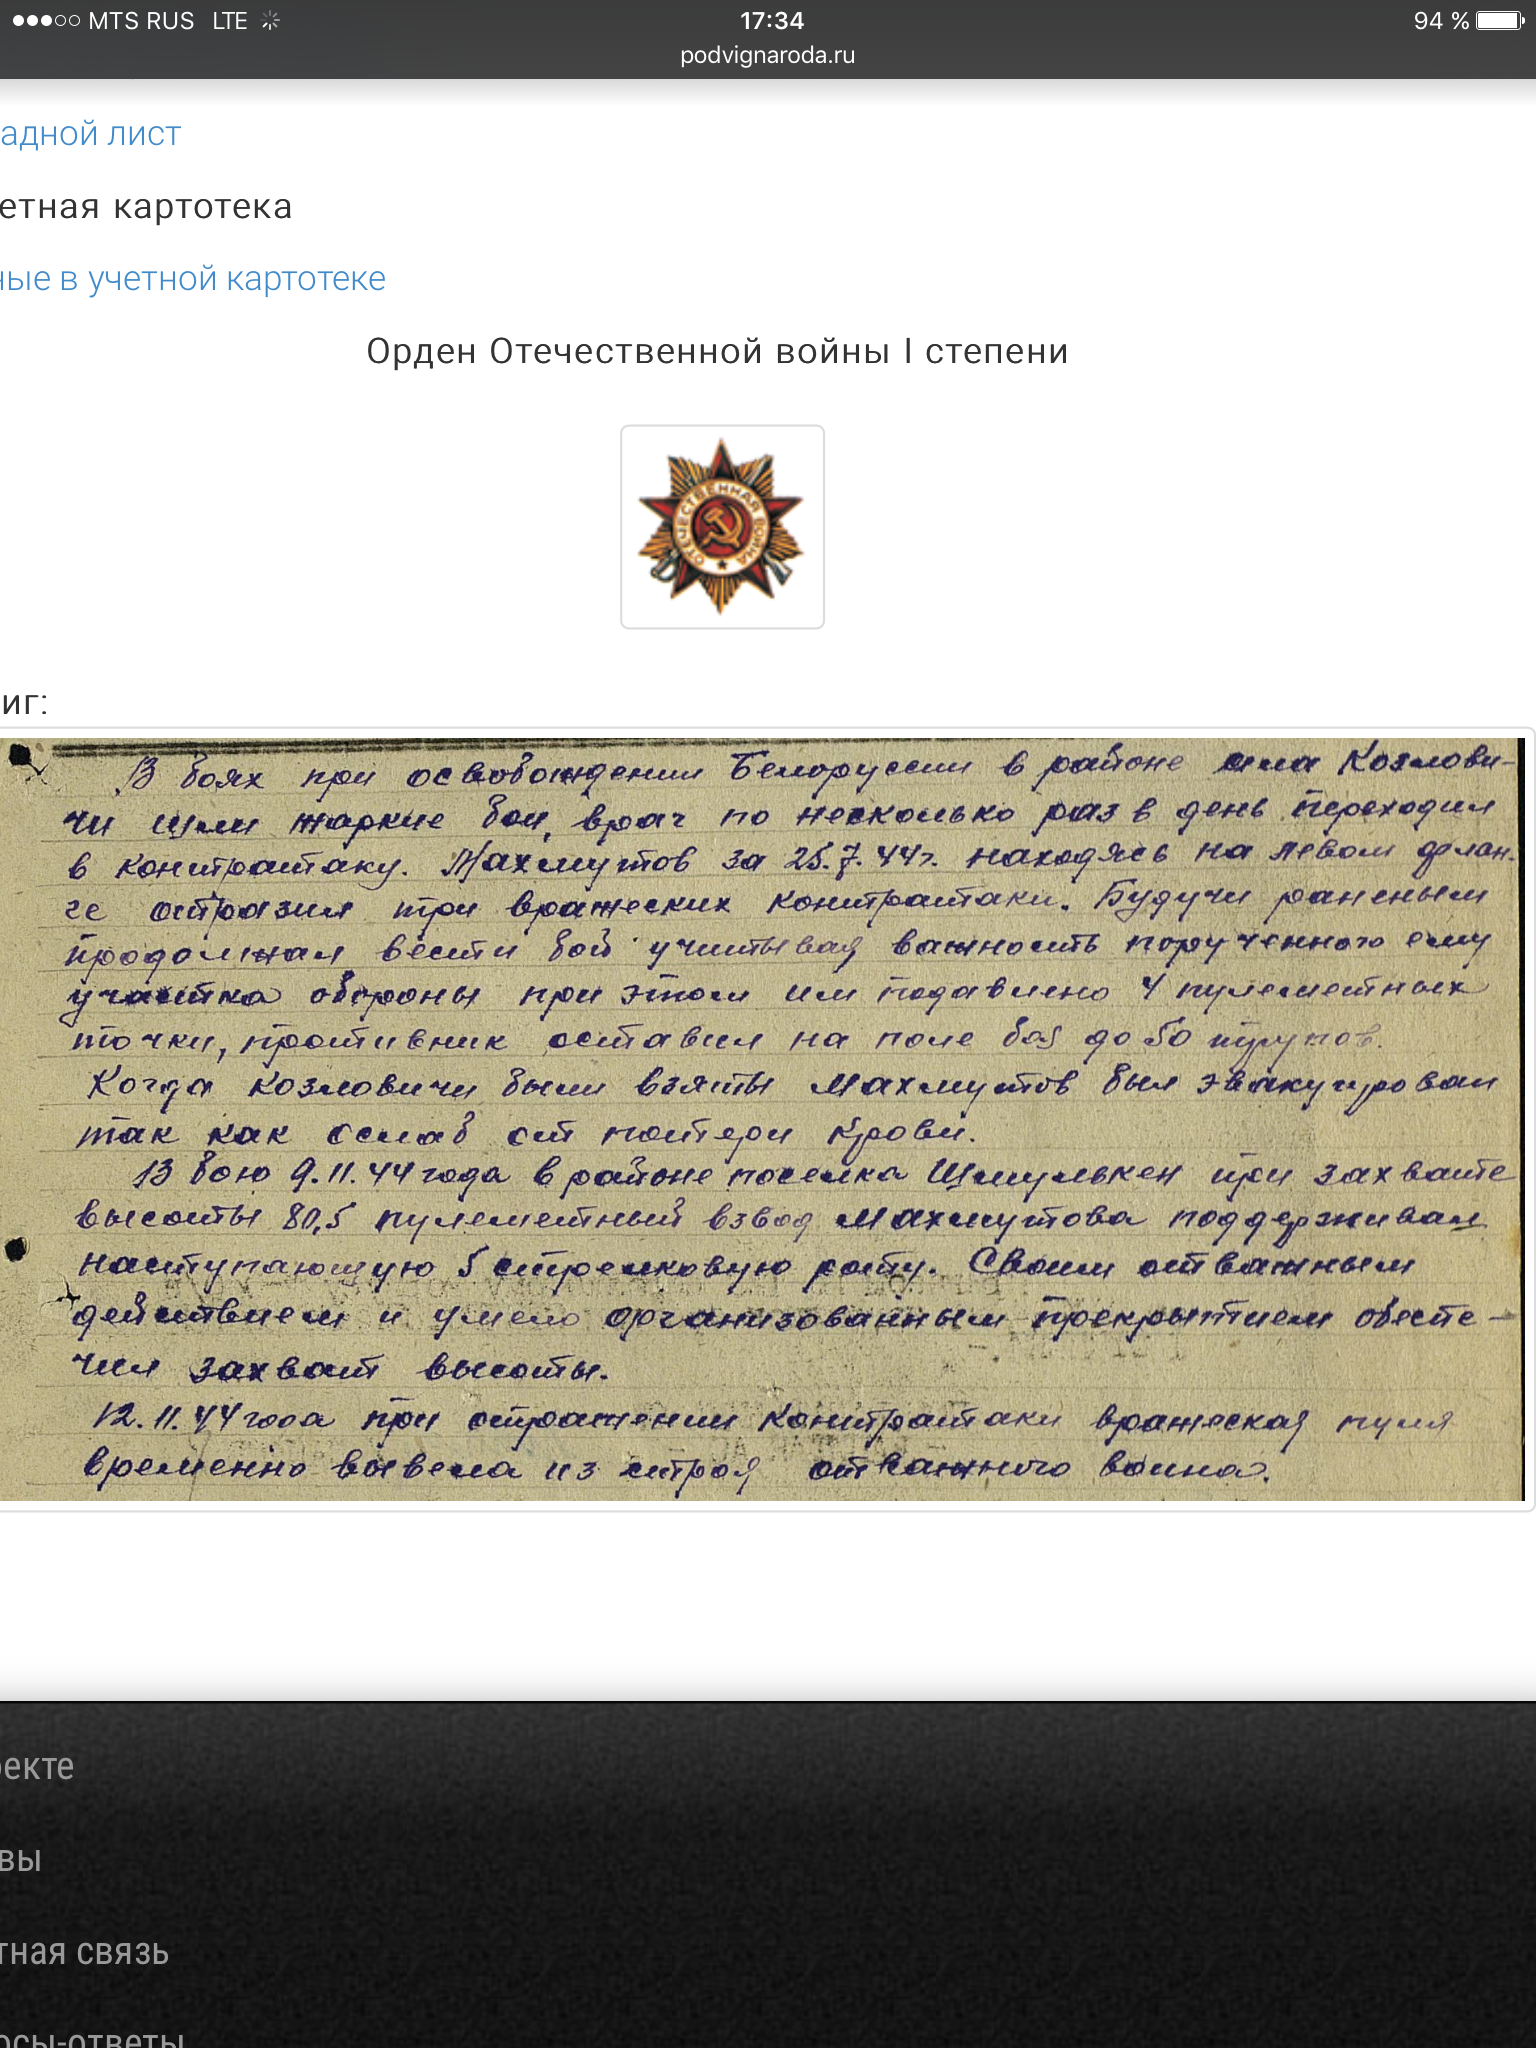 MTS RUS LTE 17:34 94 %
podvignaroda.ru
адной лист
етная картотека
ные в учетной картотеке
Орден Отечественной войны I степени
ОТЕЧЕСТВЕННАЯ ВОЙНА
иг:
В боях при освобождении Белоруссии в районе села Козлови-
чи шли жаркие бои, враг по несколько раз в день переходил
в контратаку. Махмутов за 25.7.44г. находясь на левом флан-
ге отразил три вражеских контратаки. Будучи раненым
продолжал вести бой учитывая важность порученного ему
участка обороны при этом им подавлено 4 пулеметных
точки, противник оставил на поле боя до 50 трупов.
Когда Козловичи были взяты Махмутов был эвакуирован
так как ослаб от потери крови.
В бою 9.11.44 года в районе поселка Шмулькен при захвате
высоты 80,5 пулеметный взвод Махмутова поддерживал
наступающую 5 стрелковую роту. Своим отважным
действием и умело организованным прекрытием обеспе-
чил захват высоты.
12.11.44 года при отражении контратаки вражеская пуля
временно вывела из строя отважного воина.
оекте
вы
тная связь
осы-ответы